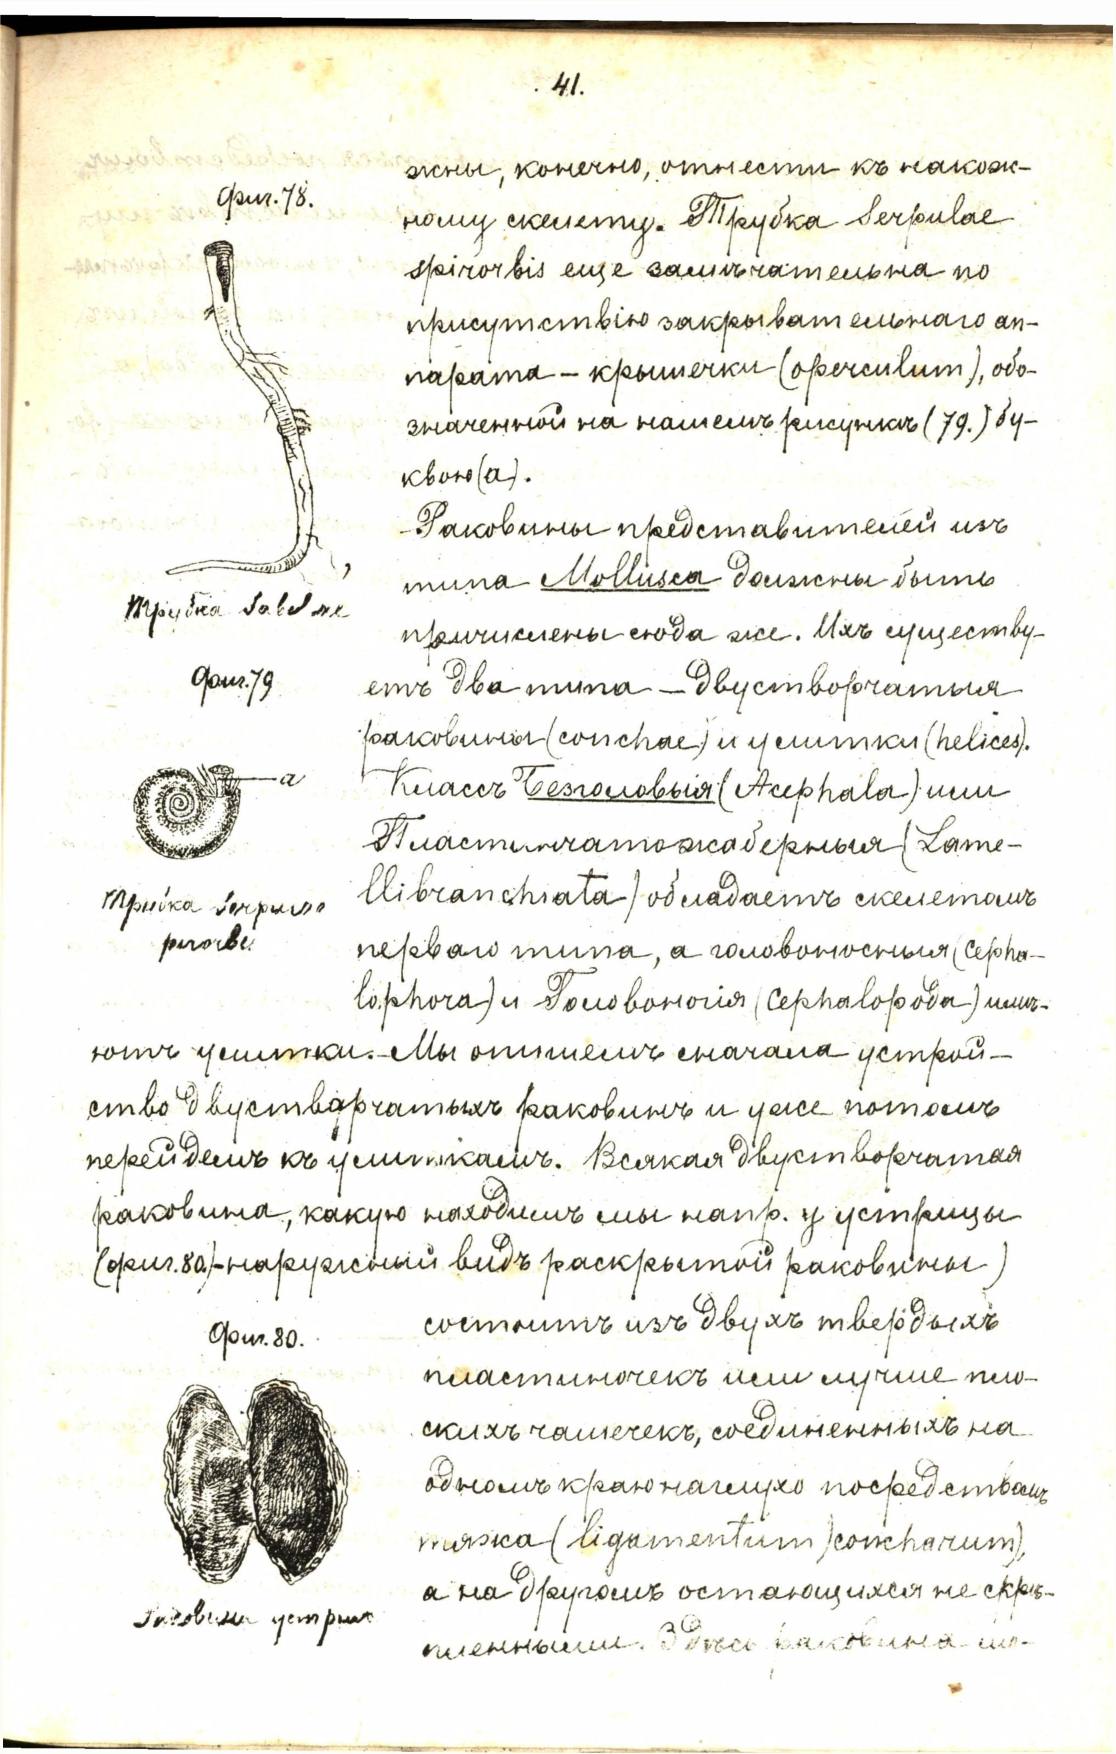 41.
жны, конечно, отнести къ накож-
ному скелету. Трубка Serpulae
spirorbis еще замѣчательна по
присутствію закрывательнаго ап-
парата – крышечки (operculum), обо-
значенной на нашемъ рисункѣ (79.) бу-
квою (a).
Раковины представителей изъ
типа Mollusca должны быть
причислены сюда же. Ихъ существу-
етъ два типа – двустворчатыя
раковины (conchae) и улитки (helices).
Классъ Безголовыя (Acephala) или
Пластинчатожаберныя (Lame-
llibranchiata) обладаетъ скелетомъ
перваго типа, а головоносныя (Cepha-
lophora) и Головоногія (Cephalopoda) имѣ-
ютъ улитки. – Мы опишемъ сначала устрой-
ство двустворчатыхъ раковинъ и уже потомъ
перейдемъ къ улиткамъ. Всякая двустворчатая
раковина, какую находимъ мы напр. у устрицы
(фиг. 80.) – наружный видъ раскрытой раковины)
состоитъ изъ двухъ твердыхъ
пластиночекъ или лучше пло-
скихъ чашечекъ, соединенныхъ на
одномъ краю наглухо посредствомъ
тяжа (ligamentum) concharum),
а на другомъ остающихся не скрѣ-
пленными. Здѣсь раковина мо-
Фиг. 78.
Трубка Sabellae
Фиг. 79
a
Трубка
Фиг. 80.
Раковина устрицы